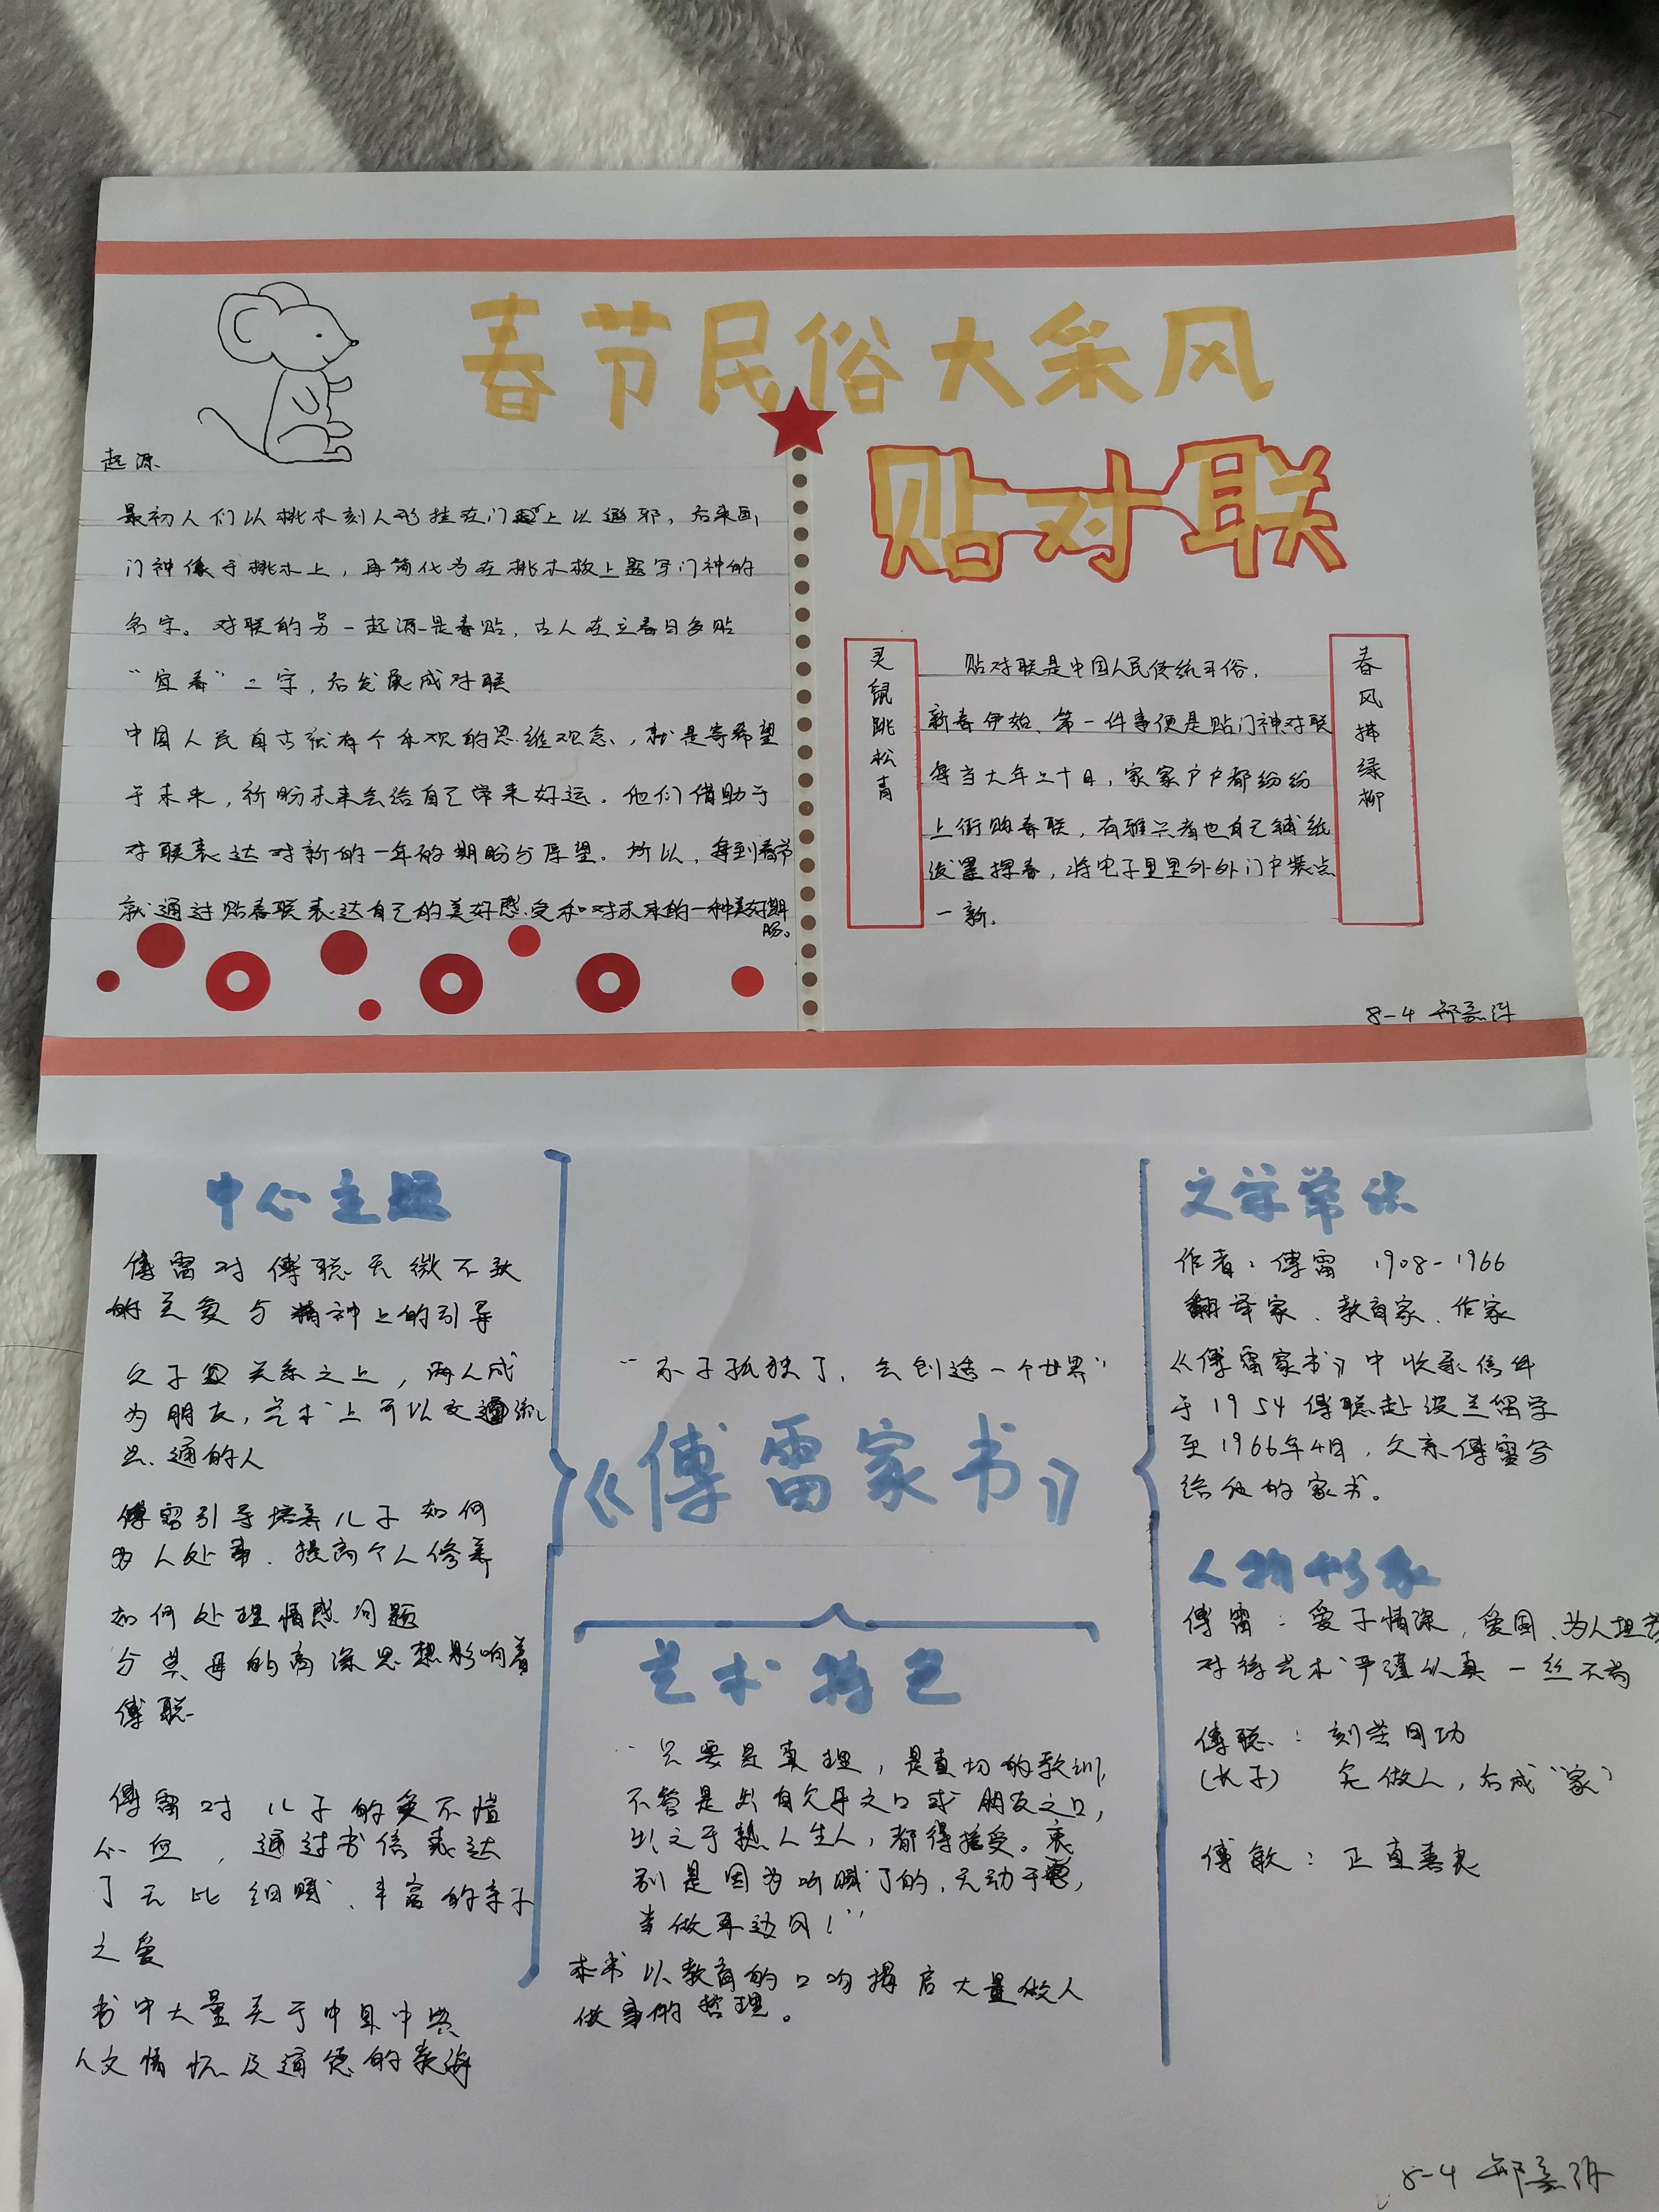 春节民俗大采风
贴对联
起源
最初人们以桃木刻人形挂在门上以避邪，后来画
门神像于桃木上，再简化为在桃木板上题写门神的
名字。对联的另一起源是春贴，古人在立春日多贴
“宜春”二字，后发展成对联
中国人民自古就有个乐观的思维观念，就是寄希望
于未来，祈盼未来会给自己带来好运。他们借助于
对联表达对新的一年的期盼与厚望。所以，每到春节
就通过贴春联表达自己的美好感受和对未来的一种美好期
盼。
灵鼠跳松青
贴对联是中国人民传统习俗.
新春伊始、第一件事便是贴门神对联
每当大年三十日，家家户户都纷纷
上街购春联，有雅兴者也自己铺纸
泼墨挥春，将宅子里里外外门户装点
一新.
春风拂绿柳
8-4
中心主题
傅雷对傅聪无微不致
的关爱与精神上的引导
父子关系之上，两人成
为朋友，艺术上可以交流
共通的人
傅雷引导培养儿子如何
为人处事．提高个人修养
如何处理情感问题
父母的高深思想影响着
傅聪
傅雷对儿子的爱不惜
心血，通过书信表达
了无比细腻、丰富的亲子
之爱
书中大量关于中
人文情怀及道德的
“赤子孤独了，会创造一个世界”
《傅雷家书》
艺术特色
“只要是真理，是真切的教训，
不管是出自父母之口或朋友之口，
出之于熟人生人，都得接受。
别是因为听腻了的，无动于衷，
当做耳边风！”
本书以教育的口吻揭启大量做人
做事的哲理。
文学常识
作者：傅雷 1908-1966
翻译家、教育家、作家
《傅雷家书》中收录信件
于1954傅聪赴波兰留学
至1966年4月，父亲傅雷写
给他的家书。
人物形象
傅雷：爱子情深，爱国、为人坦荡
对待艺术严谨认真 一丝不苟
傅聪：刻苦用功
(长子) 先做人，后成“家”
傅敏：正直善良
8-4